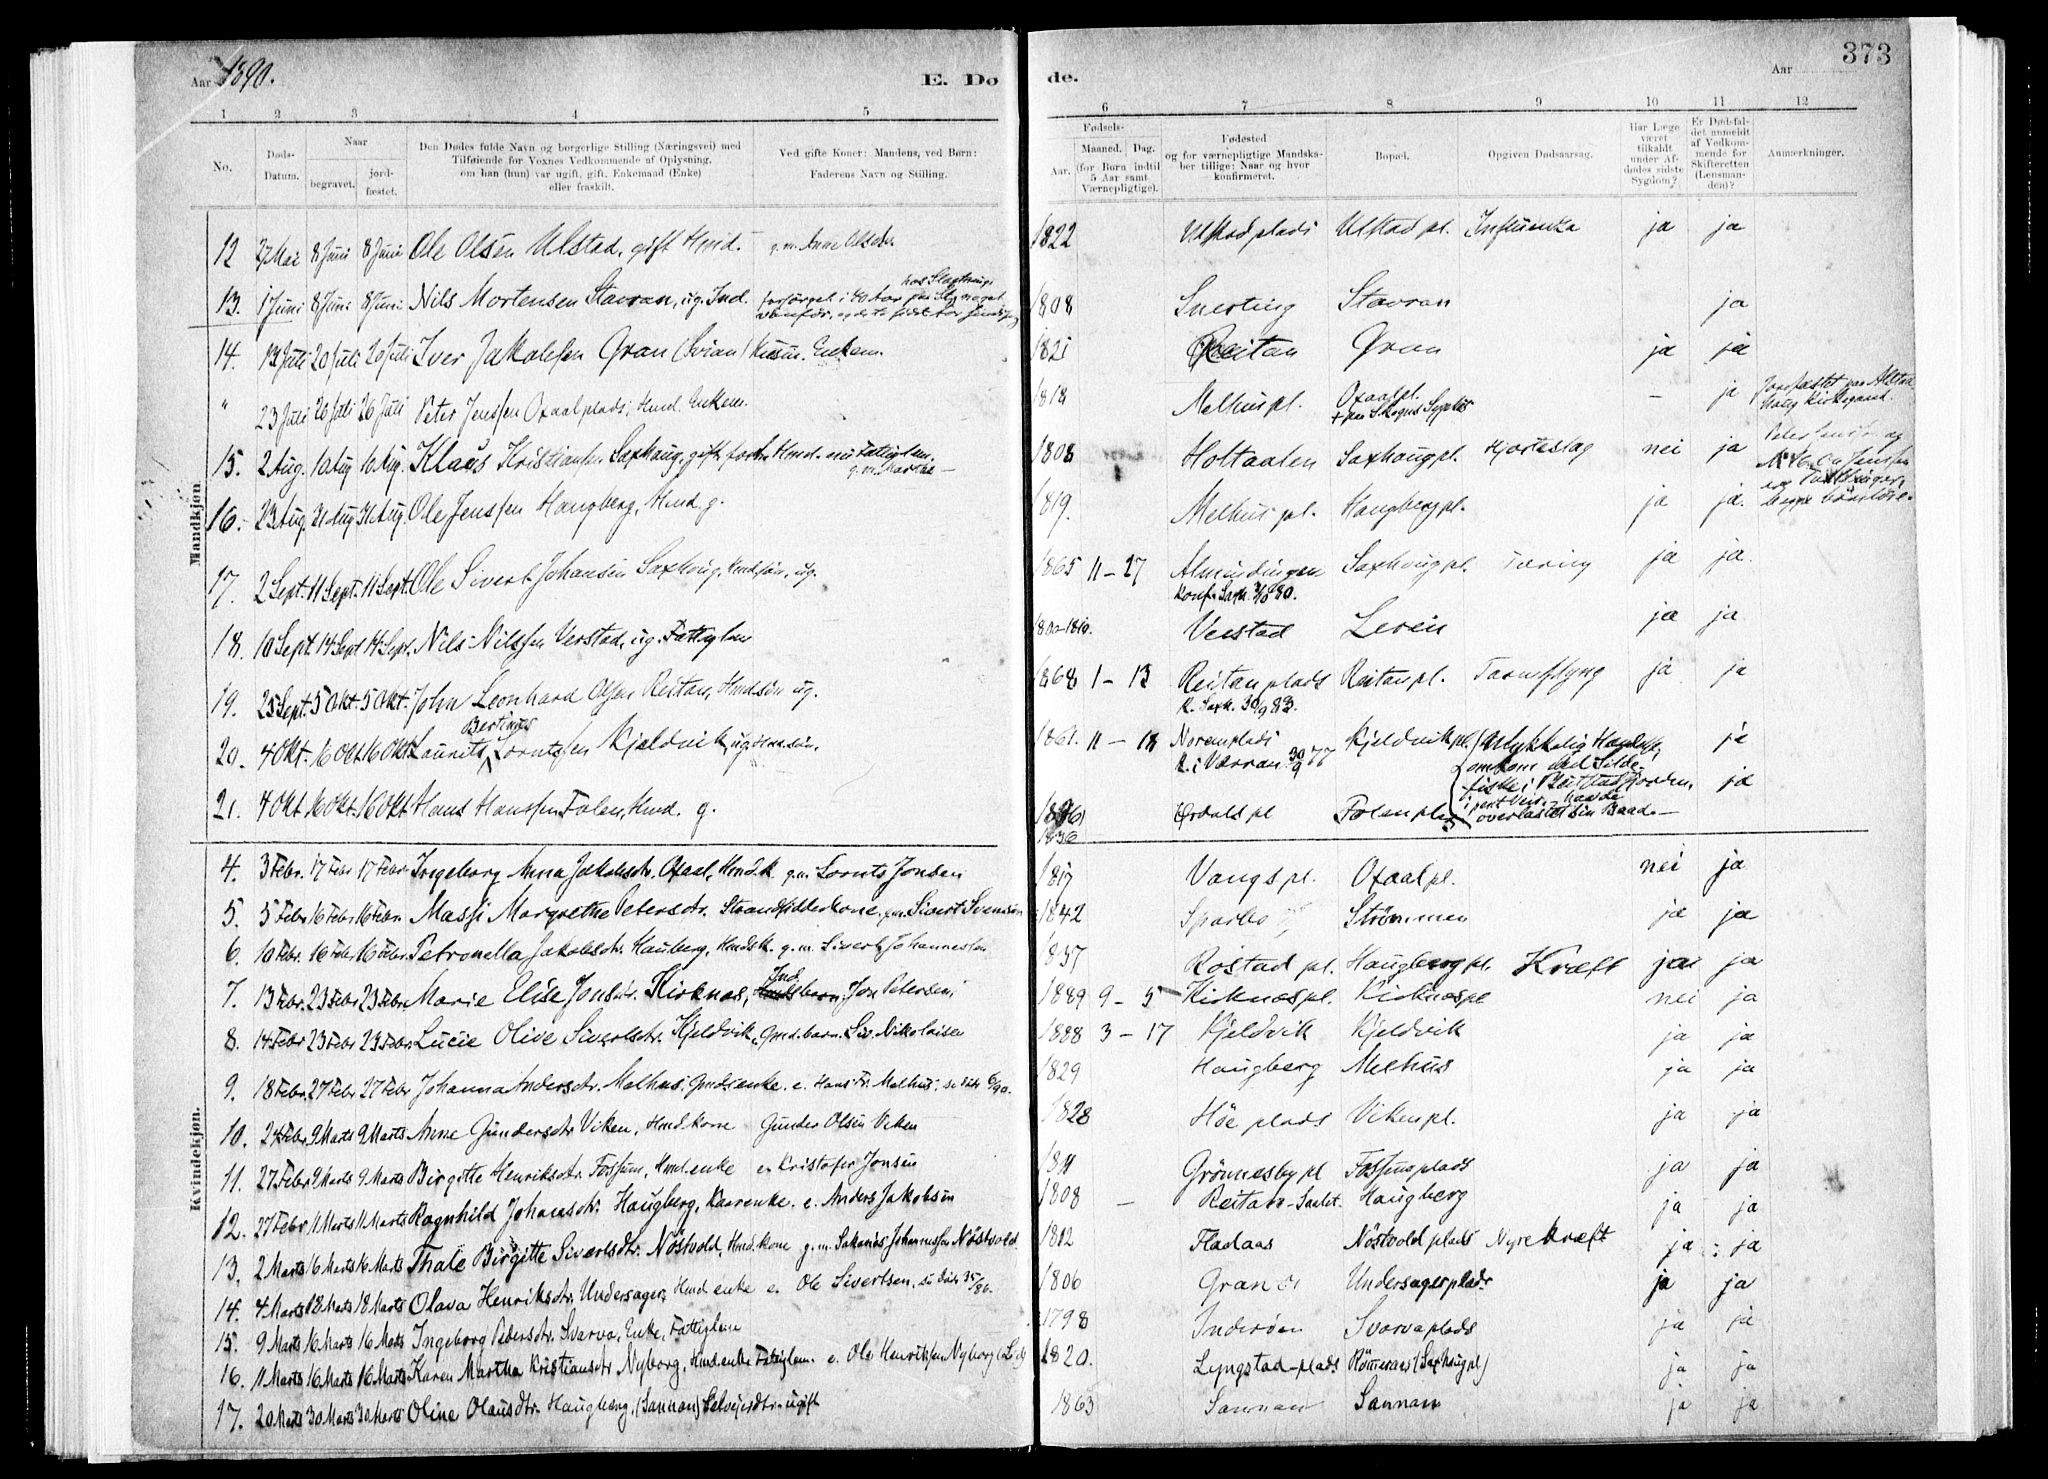 Aar 1890.
E. Dø
de.
Aar
373
1 2 3 4 5 6 7 8 9 10 11 12
No.
Døds-Datum.
Naar
begravet.
jordfæstet.
Den Dødes fulde Navn og borgerlige Stilling (Næringsvei) med
Tilføiende for Voxnes Vedkommende af Oplysning,
om han (hun) var ugift, gift, Enkemand (Enke)
eller fraskilt.
Ved gifte Koner: Mandens, ved Børn:
Faderens Navn og Stilling.
Fødsels-
Aar.
Maaned. Dag.
(for Børn indtil
5 Aar samt
Værnepligtige).
Fødested
og for værnepligtige Mandskaber
tillige: Naar og hvor
konfirmeret.
Bopæl.
Opgiven Dødsaarsag.
Har Læge
været
tilkaldt
under Afdødes
sidste
Sygdom?
Er Dødsfaldet
anmeldt
af Vedkommende
for
Skifteretten
(Lensmanden)?
Anmærkninger.
Mandkjøn
12 27 Mai 8 Juni 8 Juni Ole Olsen Ulstad, gift Hmd. g.m. Anne Olsdtr. 1822 Ulstadplads Ulstad pl. Influenza ja ja
13. 1 Juni 8 Juni 8 Juni Nils Mortensen Stavran, ug. Ind. 1808 Snerting Stavran ja
14. 13 Juli 20 Juli 20 Juli Iver Jakobsen Gran Enkem. 1821 Reitan Gran ja ja
" 23 Juli 26 Juli 26 Juli Peter Jenssen Oxaalplads, Hmd. Enkem. 1818 Melhus pl. Oxaalpl. – ja Jordfæstet paa Kirkegaard.
15. 2 Aug. 10 Aug 10 Aug. Klaus Kristians. Saxhaug, gift, Hmd. nu Fattiglem. g.m. Martha – 1808 Holtaalen Saxhaug pl. Hjerteslag nei ja
16. 23 Aug. 31 Aug 31 Aug. Ole Jenssen Haugberg, Hmd. g. 1819. Melhus pl. Haugberg pl. ja ja.
17. 2 Sept. 11 Sept. 11 Sept. Ole Sivert Johansen Saxhaug, Hmdsøn, ug. 1865 11 – 27 Almindingen Saxhaug pl. Tæring ja ja.
Konf. Saxh. 80.
18. 10 Sept. 14 Sept 14 Sept. Nils Nilssen Verstad, ug. Fattiglem 1800–1810. Verstad Lerein ja ja
19. 25 Sept. 5 Okt. 5 Okt. John Leonhard Olsen Reitan, Hmdsøn ug. 1868 1 – 13 Reitanplads Reitan pl. ja ja
K. Saxh. 30/9 83.
20. 4 Okt. 16 Okt 16 Okt Laurits Bertinus Lorntssen Kjeldvik, ug. Hmdsøn. 1861. 11 – 18 Noremplads Kjeldvik pl. Ulykkelig Hændelse, ja
K. i Værran 30/9 77 omkom ved Silde-
fiske i Beitstadfjorden,
21. 4 Okt 16 Okt. 16 Okt Hans Hanssen Folen, Hmd. g. 1836 Ørdals pl Folen plads i pent Veir, – havde ja
overlastet sin Baad. –
Kvindekjøn.
4. 3 Febr. 17 Febr 17 Febr. Ingeborg Anna Jakobsdtr. Oxaal, Hmd.k. g.m. Lornts Jonsen 1817 Vangs pl. Oxaal pl. nei ja
5. 5 Febr 16 Febr 16 Febr. Massi Margrethe Petersdtr. Strandsidderkone, g.m. Sivert Svensen 1842 Sparbo Strömmen ja ja
6. 10 Febr. 16 Febr 16 Febr. Petronella Jakobsdtr. Hauberg, Hmdsk. g.m. Sivert Johannessen 1837 Rostad pl. Haugberg pl. Kræft ja ja
7. 13 Febr. 23 Febr 23 Febr. Marie Elise Jonsdtr. Kirknæs, Ind. barn, Jon Petersen, 1889 9 – 5 Kirknæs pl. Kirknæs pl nei ja
8. 14 Febr 23 Febr 23 Febr. Lucie Olive Sivertsdtr. Kjeldvik, Gmd. barn. Siv. Nikolaisen 1888 3 – 17 Kjeldvik Kjeldvik ja ja
9. 18 Febr. 27 Febr 27 Febr Johanna Andersdtr. Melhus, Gmdsenke. e. Hans Fr. Melhus, se døde 6/90. 1829 Haugberg Melhus ja ja
10. 24 Febr. 9 Marts 9 Marts Anne Gundersdtr Viken, Hmd.kone Gunder Olsen Viken 1828 Höe plads Viken pl. ja ja
11. 27 Febr 9 Marts 9 Marts Birgitte Henriksdtr. Fossum, Hmd.enke e. Kristofer Jonsen 1811 Grönnesby pl Fossumplads ja ja
12. 27 Febr 11 Marts 11 Marts Ragnhild Johansdtr. Haugberg, Kaarenke. e. Anders Jakobsen 1808 – Reitan Haugberg ja ja
13. 2 Marts 16 Marts 16 Marts Thale Birgitte Sivertsdtr. Nöstvold, Hmd.kone g.m. Sakarias Johannessen Nöstvold. 1812 Fladaas Nöstvold plads Nyrekræft ja ja
14. 4 Marts 18 Marts 18 Marts Olava Henriksdtr. Undersager, Hmd enke e. Ole Sivertsen, se døde 35/86. 1806 Gran Undersagerplads ja ja
15. 9 Marts 16 Marts 16 Marts Ingeborg Pedersdtr. Svarva, Enke, Fattiglem 1798 Inderøen Svarvaplads ja ja
16. 11 Marts 16 Marts 16 Marts Karen Martha Kristiansdtr Nyborg, Hmd.enke Fattiglem. e. Ole Henriksen Nyborg 1820. Lyngstad-plads Römenæs (Saxhaug pl) ja ja
17. 20 Marts 30 Marts 30 Marts Oline Olausdtr. Haugberg, (Sannan) Selveierdtr. ugift 1863 Sannan Sannan ja ja